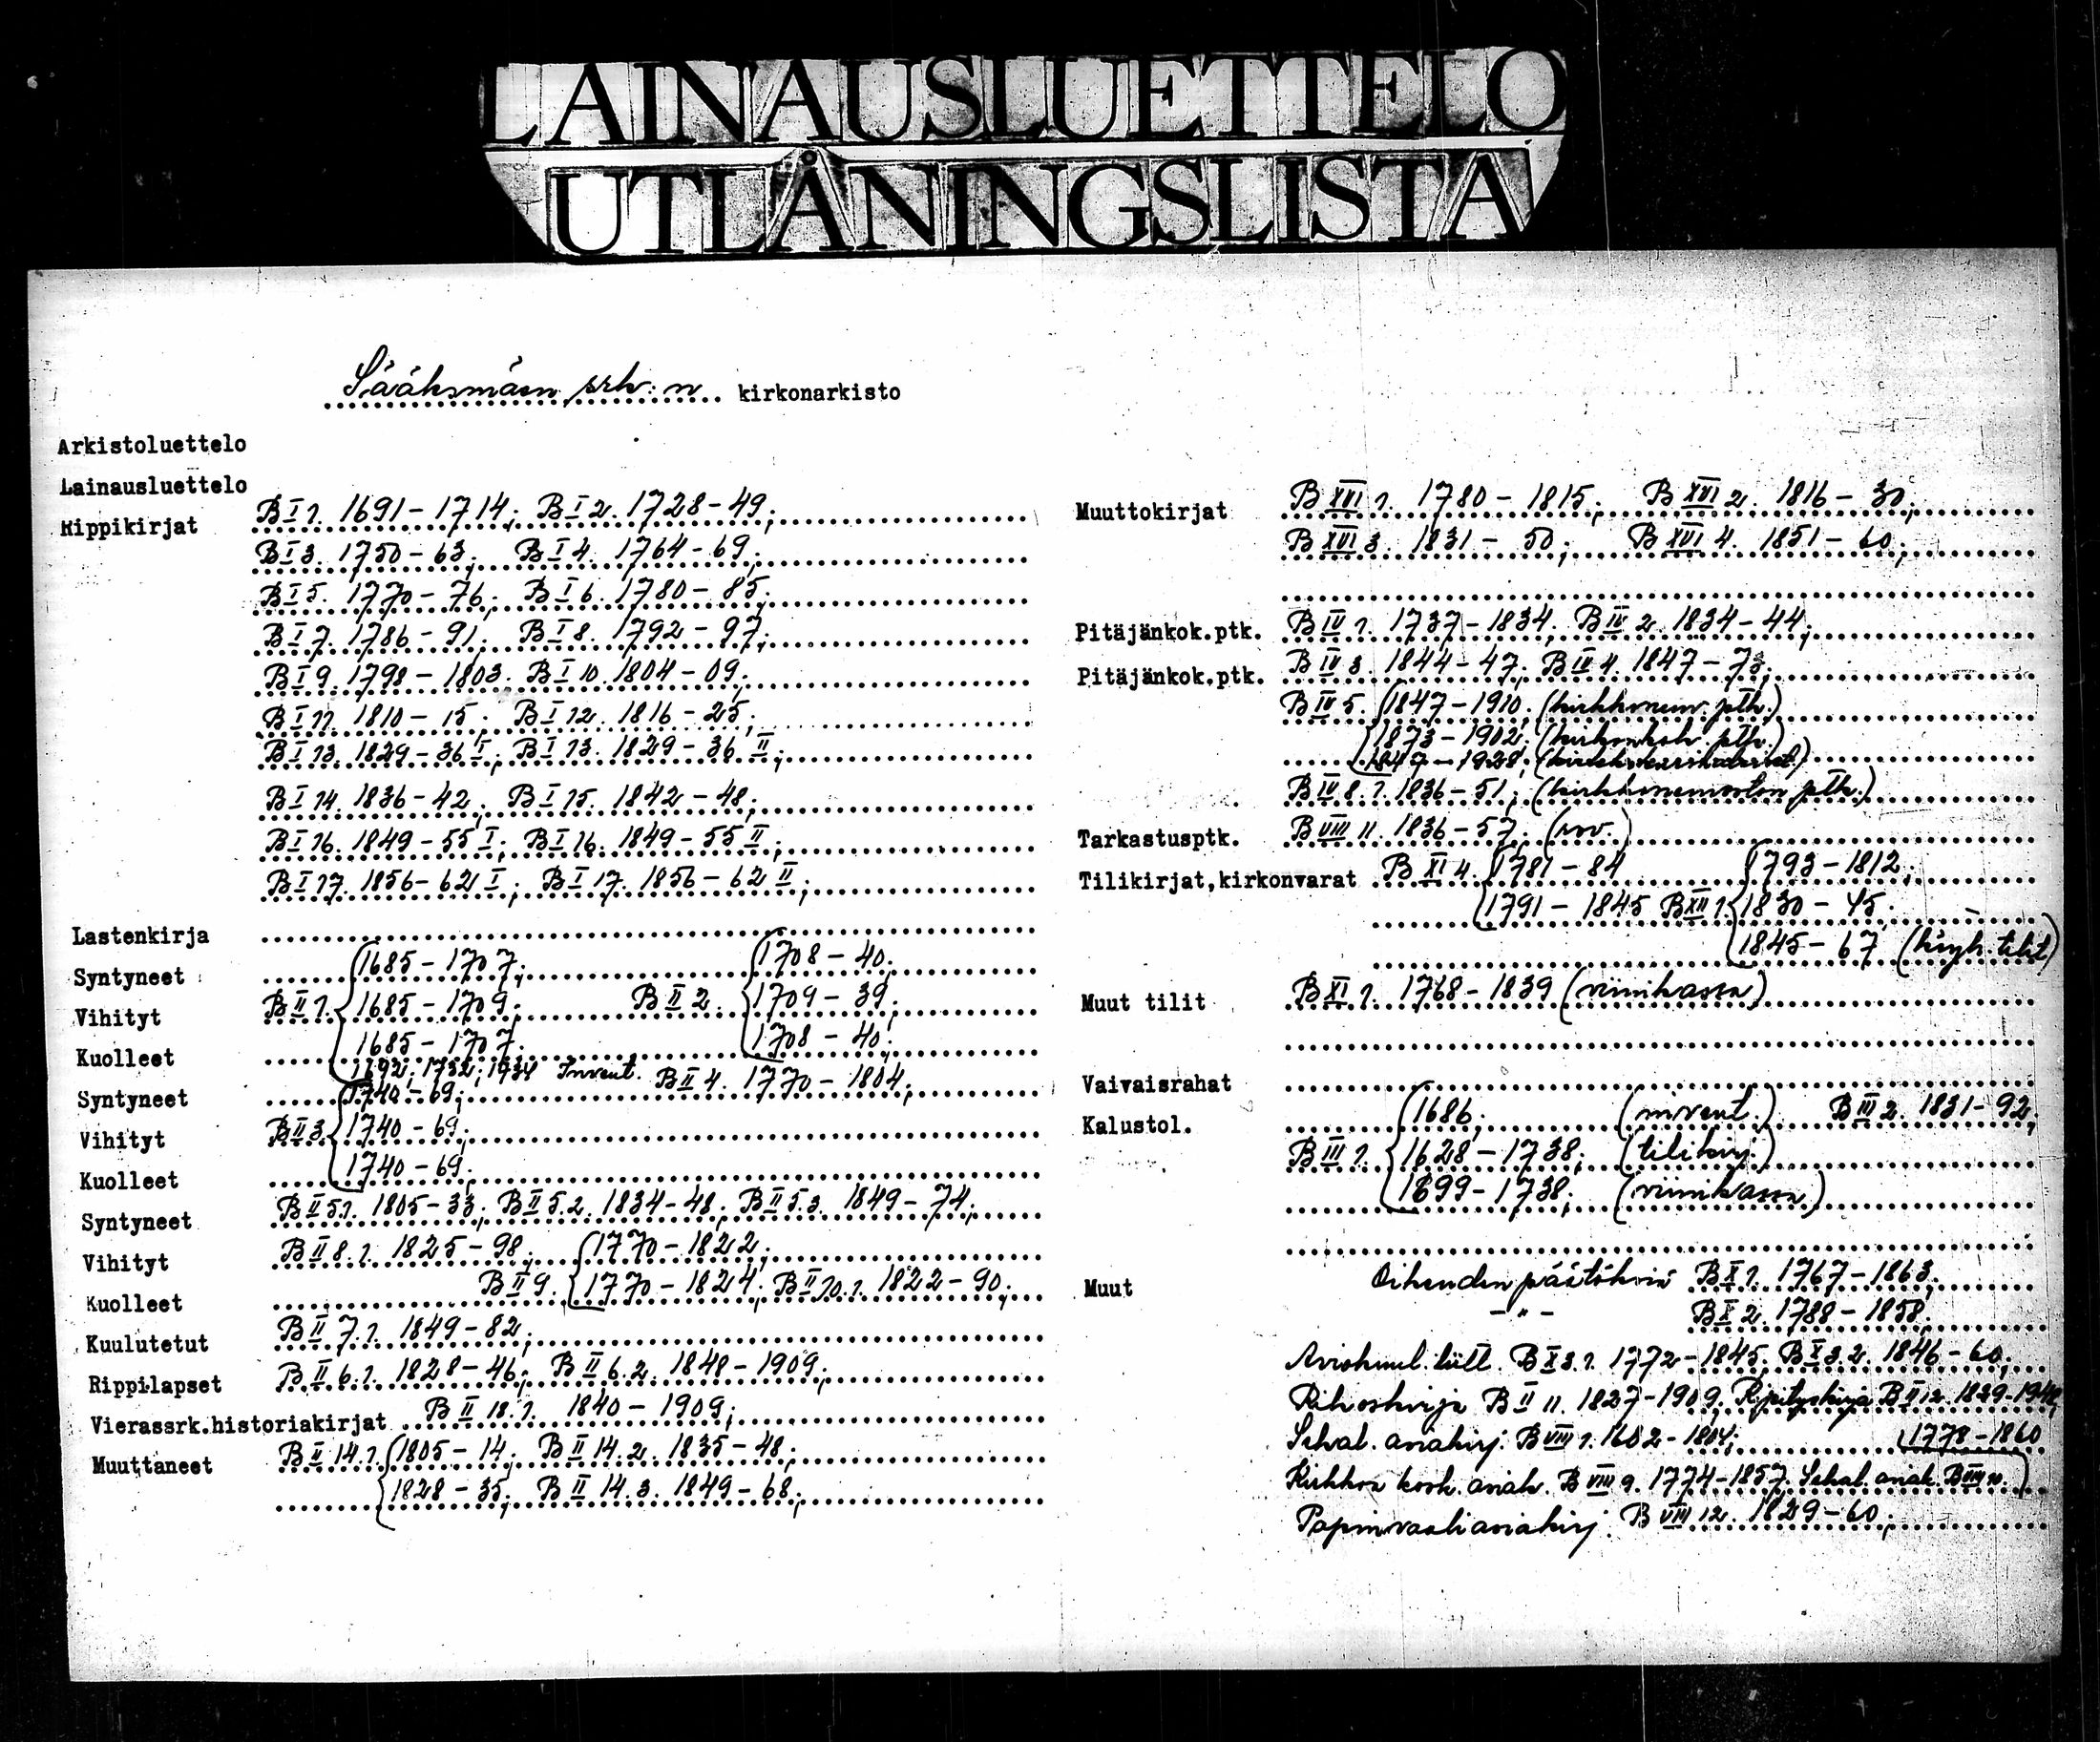 LAINAUSLUETTELO
UTLÅNINGSLISTA
Sääksmäen srk:n kirkonarkisto
Arkistoluettelo
Lainausluettelo
Rippikirjat B I 1. 1691-1714; B I 2. 1728-49;
B I 3. 1750-63; B I 4. 1764-69;
B I 5. 1770-76; B I 6. 1780-85;
B I 7. 1786-91; B I 8. 1792-97;
B I 9. 1798-1803; B I 10. 1804-09;
B I 11. 1810-15; B I 12. 1816-25;
B I 13. 1829-36 I; B I 13. 1829-36 II;
B I 14. 1836-42; B I 15. 1842-48;
B I 16. 1849-55 I; B I 16. 1849-55 II;
B I 17. 1856-62 I; B I 17. 1856-62 II;
Lastenkirja
Syntyneet 1685-1707; 1708-40;
Vihityt B II 1. 1685-1709; B II 2. 1709-39;
Kuolleet 1685-1707; 1708-40;
1692; 1732; 1734 Invent. B II 4. 1770-1804;
Syntyneet 1740-69;
Vihityt B II 3. 1740-69;
Kuolleet 1740-69;
Syntyneet B II 5.1. 1805-33; B II 5.2. 1834-48; B II 5.3. 1849-74;
Vihityt B II 8.1. 1825-98; 1770-1822;
Kuolleet B II 9. 1770-1824; B II 10.1. 1822-90;
Kuulutetut B II 7.1. 1849-82;
Rippilapset B II 6.1. 1828-46; B II 6.2. 1848-1909;
Vierassrk.historiakirjat B II 18.1. 1840-1909;
Muuttaneet B II 14.1. 1805-14; B II 14.2. 1835-48;
1828-35; B II 14.3. 1849-68;
Muuttokirjat B XVI 1. 1780-1815; B XVI 2. 1816-30;
B XVI 3. 1831-50; B XVI 4. 1851-60;
Pitäjänkok.ptk. B IV 1. 1737-1834; B IV 2. 1834-44;
Pitäjänkok.ptk. B IV 3. 1844-47; B IV 4. 1847-73;
B IV 5. 1847-1910; (kirkkoneuv. ptk.)
1873-1902; (kirkonkok. ptk.)
1928;
B IV 8.1. 1836-51; (kirkkoneuvoston ptk.)
Tarkastusptk. B VIII 11. 1836-57; (rov.)
Tilikirjat,kirkonvarat B XI 4. 1781-84 1793-1812;
1791-1845 B XII 1. 1830-45;
1845-67 (köyh. tilit)
Muut tilit B XI 1. 1768-1839 (viinikassa)
Vaivaisrahat
Kalustol. 1686; (invent.) B III 2. 1831-92;
B III 1. 1628-1738; (tilikirj.)
1699-1738; (viinikassa)
Muut Oikeuden päätöksiä B X 1. 1767-1863;
-"- B X 2. 1788-1858;
Aviokuul. luett. B X 3.1. 1772-1845; B X 3.2. 1846-60;
Rikoskirja B II 11. 1827-1909; Ripityskirja B II 12. 1829-
Sekal. asiakirj. B VIII 1. 1602-1804; 1778-1860
Kirkkoa kosk. asiak. B VIII 9. 1774-1857; Sekal. asiak. B VIII 10.
Papinvaaliasiakirj. B VIII 12. 1829-60;